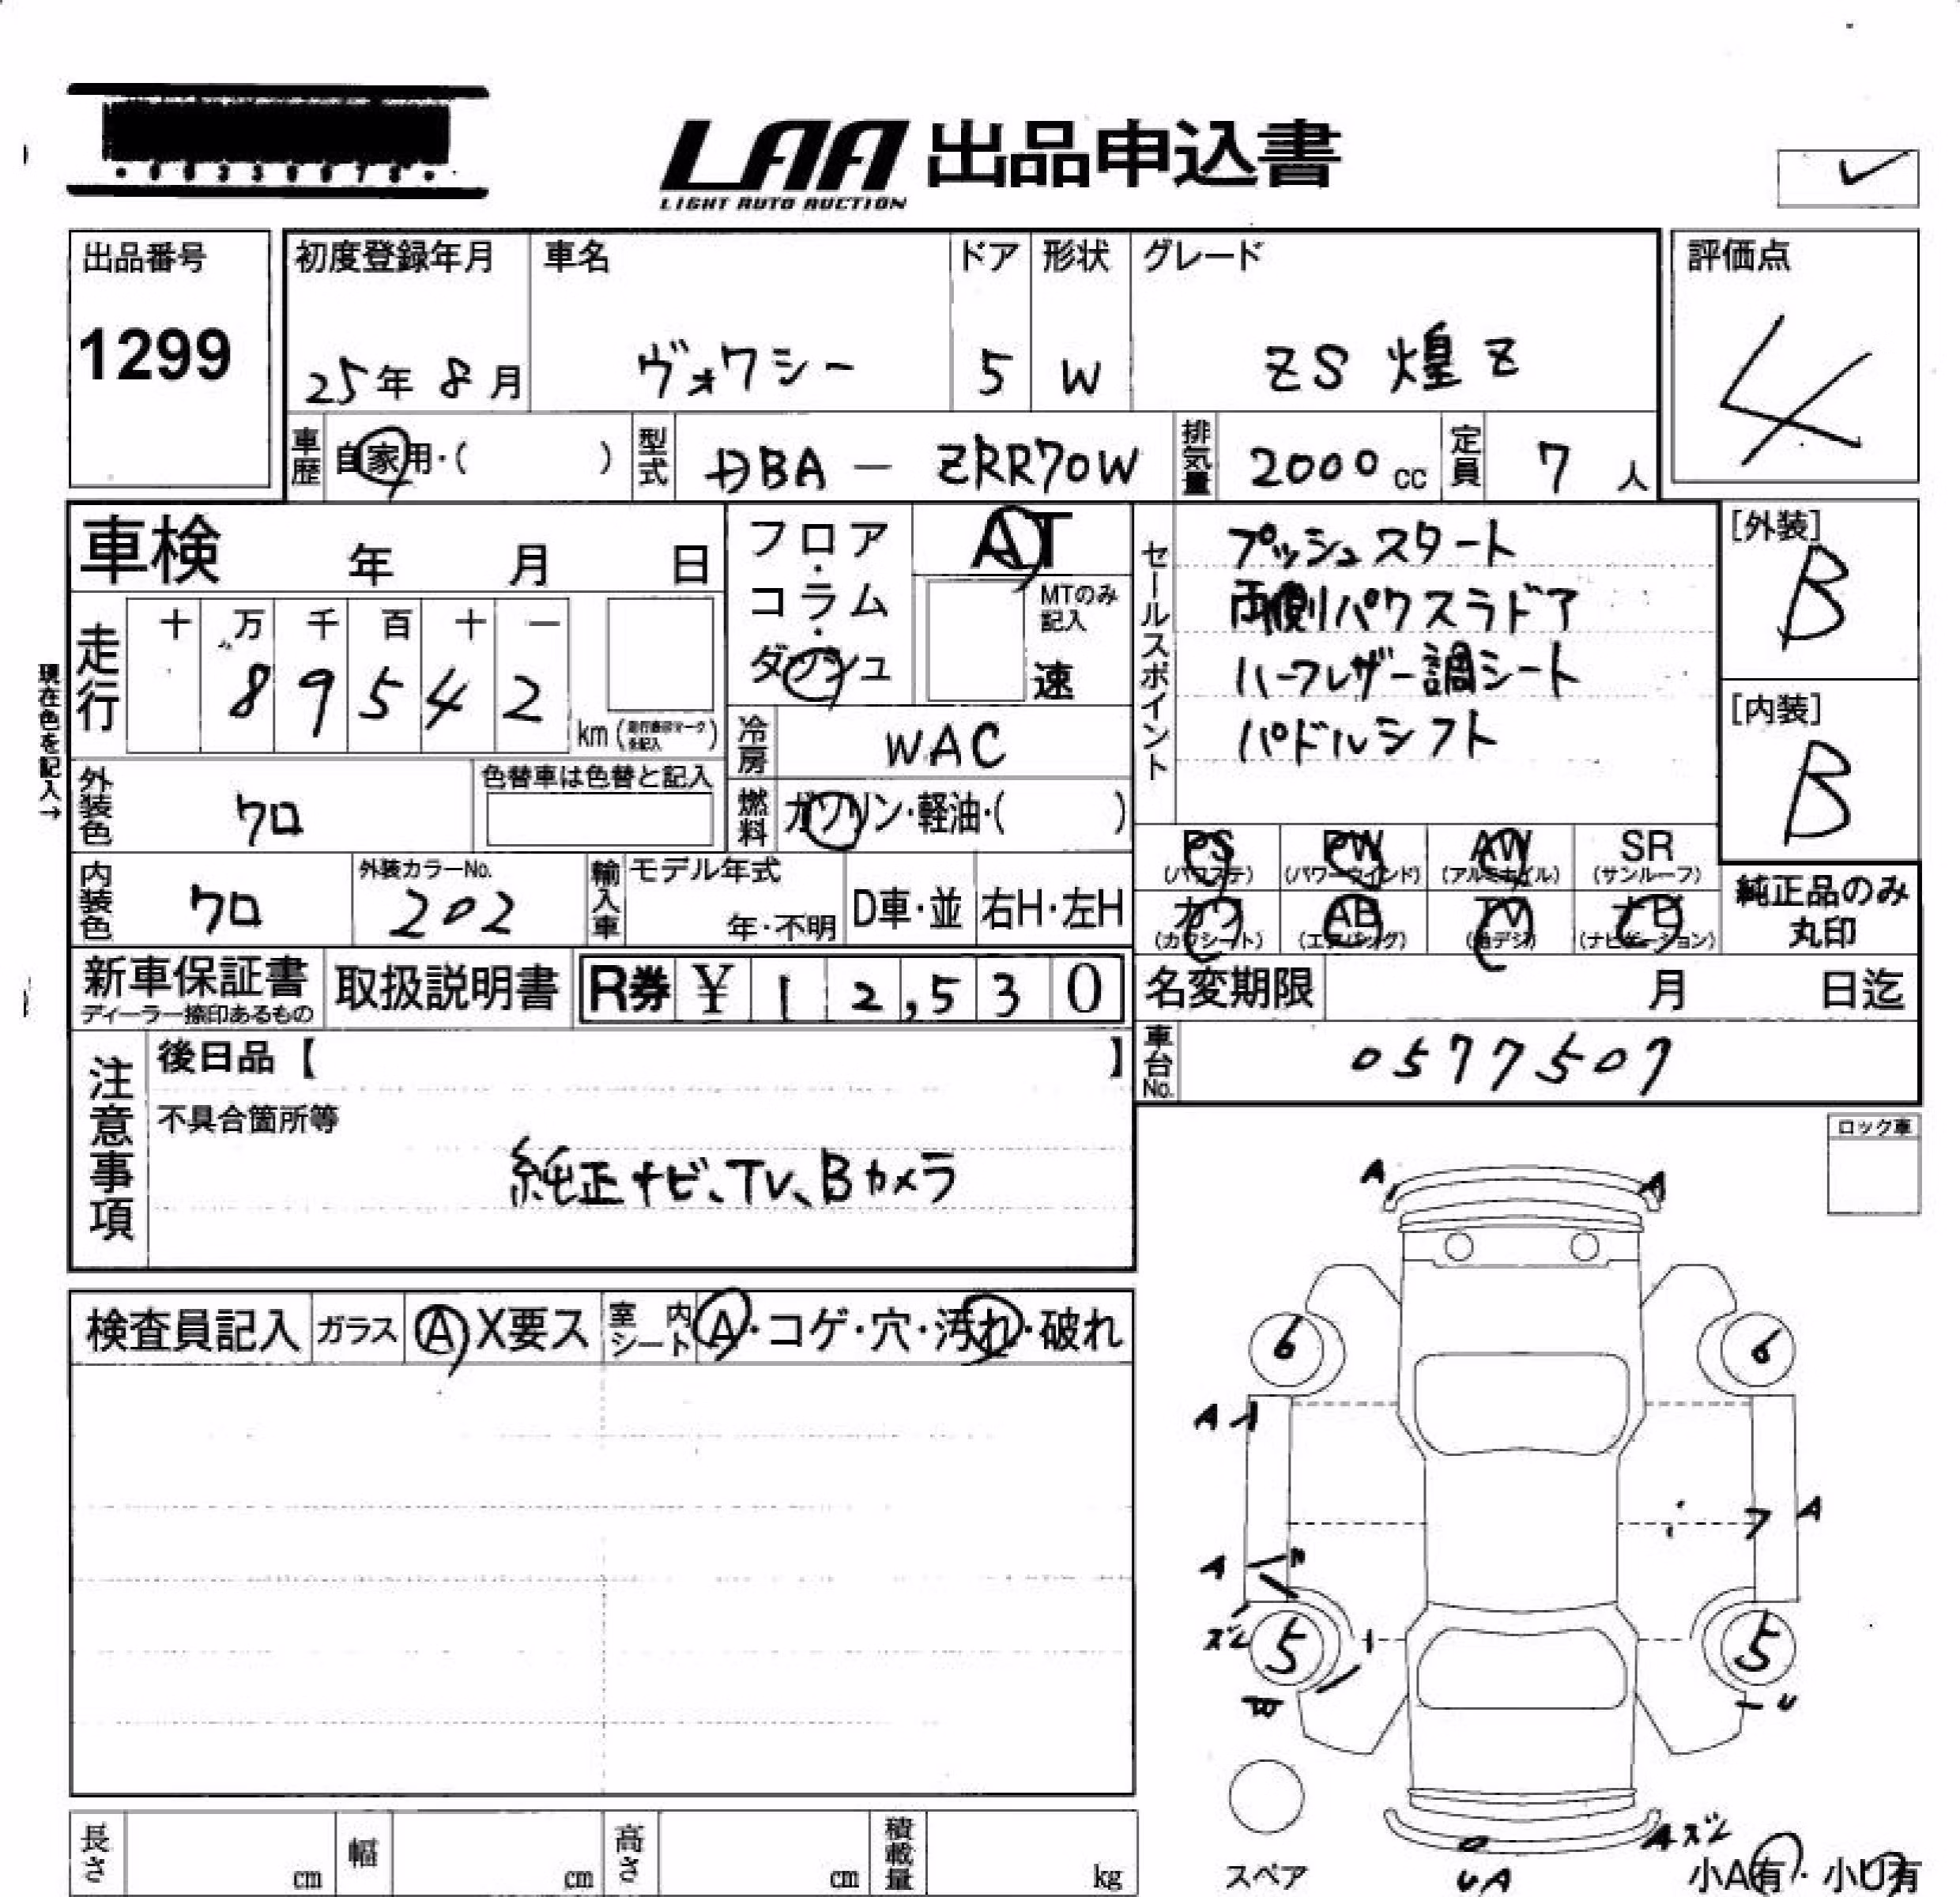 LAA 出品申込書
LIGHT AUTO AUCTION
出品番号
1299
初度登録年月
25年 8月
車名
ヴォクシー
ドア
5
形状
W
グレード
ZS 煌Z
評価点
4
車歴
自家用・( )
型式
DBA - ZRR70W
排気量
2000cc
定員
7人
車検 年 月 日
フロア・コラム・ダッシュ
AT
MTのみ記入
速
セールスポイント
プッシュスタート
両側パワスラドア
ハーフレザー調シート
パドルシフト
[外装]
B
[内装]
B
現在色を記入→
走行
十 万 千 百 十 一
8 9 5 4 2
km
冷房
WAC
燃料
ガソリン・軽油・( )
外装色
クロ
色替車は色替と記入
内装色
クロ
外装カラーNo.
202
輸入車
モデル年式
年・不明
D車・並
右H・左H
PS
(パワステ)
PW
(パワーウインド)
AW
(アルミホイル)
SR
(サンルーフ)
カワ
(カワシート)
AB
(エアバッグ)
TV
(地デジ)
ナビ
(ナビゲーション)
純正品のみ
丸印
新車保証書
ディーラー捺印あるもの
取扱説明書
R券 ¥ 1 2,5 3 0
名変期限 月 日迄
車台No.
0577507
注意事項
後日品【 】
不具合箇所等
純正ナビ、TV、Bカメラ
ロック車
検査員記入
ガラス
A X要ス
室内シート
A・コゲ・穴・汚れ・破れ
A
A
6
6
A
A
A
ズレ
5
5
U
A ズレ
UA
スペア
小A有・小U有
長さ
cm
幅
cm
高さ
cm
積載量
kg